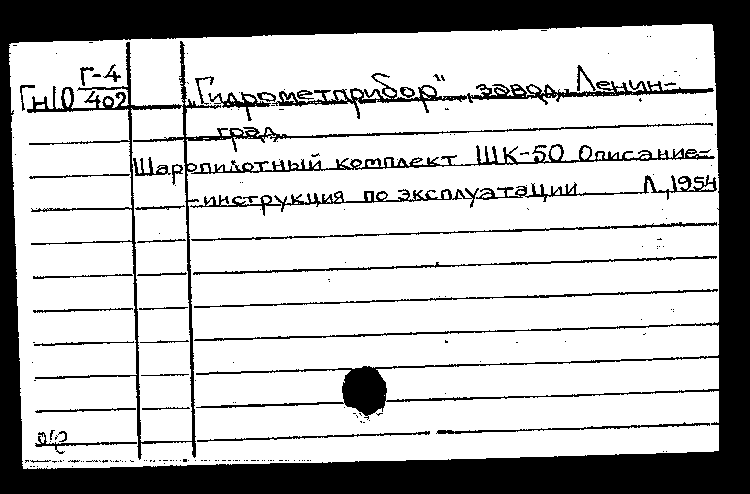 Г-4
ГнIO 402
„Гидрометприбор", завод, Ленин-
град.
Шаропилотный комплект ШК-50 Описание-
-инструкция по эксплуатации Л, 1954